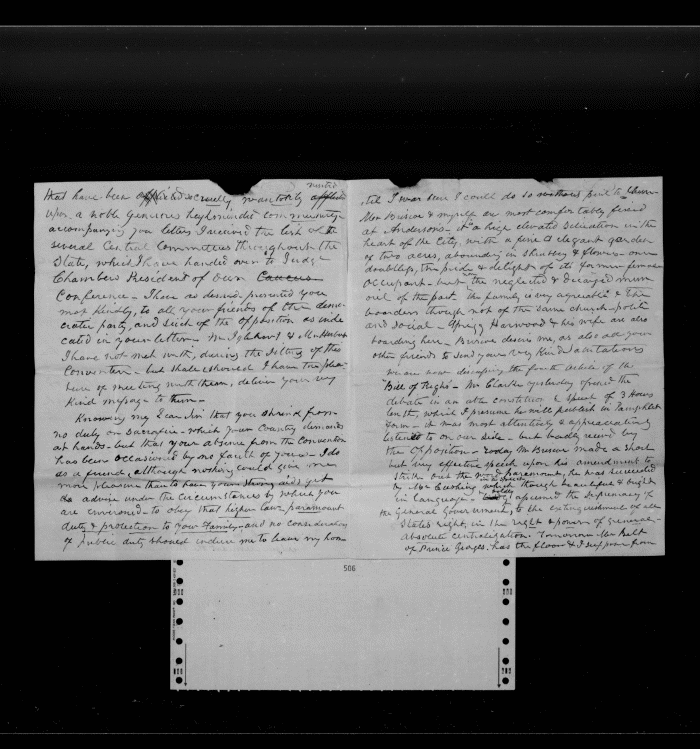 that have been cruelly wantonly
upon a noble generous highminded community
accompanying you letters I received the list of the
several Central Committees throughout the
State, which I have handed over to Judge
Chambers President of our Caucus
Conference - I have as desired presented you
most kindly, to all your friends of the demo-
cratic party, and such of the opposition as indi
cated in your letter - Mr Iglehart & Mr
I have not met with, during the sitting of this
Convention - but shall should I have the plea-
sure of meeting with them, deliver your very
kind message to them -
Knowing my Dear Sir that you shrink from
no duty or sacrifice - which your Country demands
at hands - but that your absence from the Convention
has been occasioned by no fault of yours - I do
as a friend, although nothing could give me
more pleasure than to have your strong aid, yet
advise under the circumstances by which you
are environed - to obey that higher law, paramount
duty & protection to your Family - and no consideration
of public duty should induce me to leave my hon-
'til I was sure I could do so without peril to them -
Mrs Briscoe & myself are most comfortably fixed
at Andersons - it's a high elevated situation in the
heart of the City, with a fine & elegant garden
of two acres, abounding in shrubery & flowers - once
doubtless, the pride & delight of its former female
occupant - but now the neglected & decayed
of the past. The family is very agreeable & the
boarders though not of the same church - polite
and social - Sprigg Harwood & his wife are also
boarding here. Briscoe desires me, as also all your
other friends to send your very kind salutations
we are now discussing the fourth Article of the
"Bill of Rights" - Mr Clarke yesterday opened the
debate in an able constitution l speech of 3 Hours
length, which I presume he will publish in Pamphlet
form - it was most attentively & appreciatively
listened to on our side - but badly rec'd by
the Opposition - Today Mr Briscoe made a short
but very effective speech upon his amendment to
strike out the word paramount, he was succeeded
by Mr Cushing which though beautiful &
in language - boldly espoused the supremacy of
the General Government, to the extinguishment of all
States rights, in the right & power of general -
absolute centralization. Tomorrow Mr Belt
of Prince Georges, has the floor & I suppose from
506